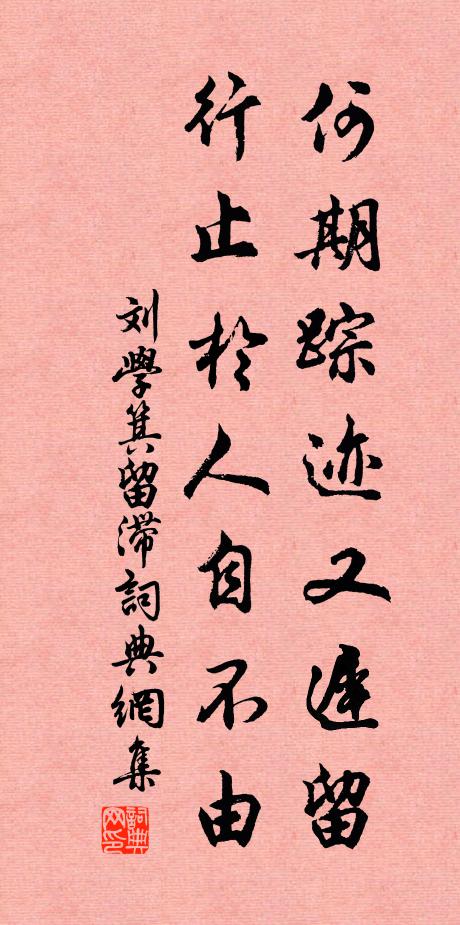 何期踪迹又遲留
行止於人自不由
刘學箕留滞詞典網集
詞典
网印